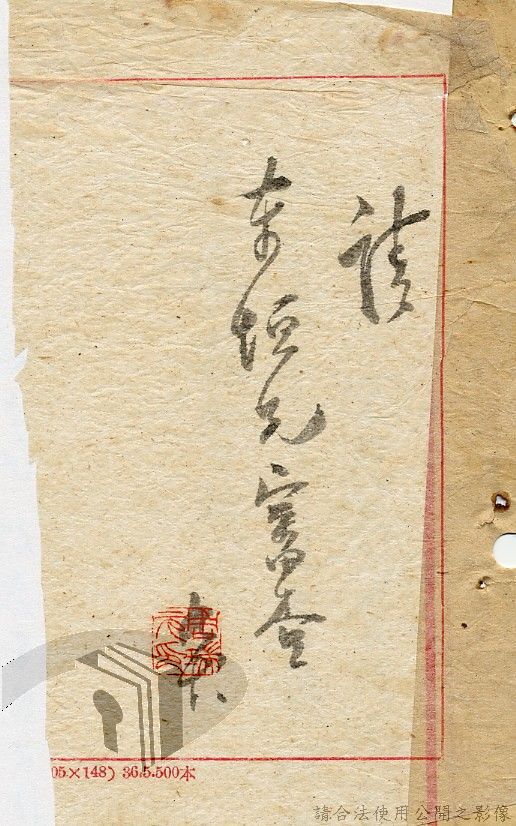 請
東垣兄審查
05.×148) 36.5.500本
請合法使用公開之影像